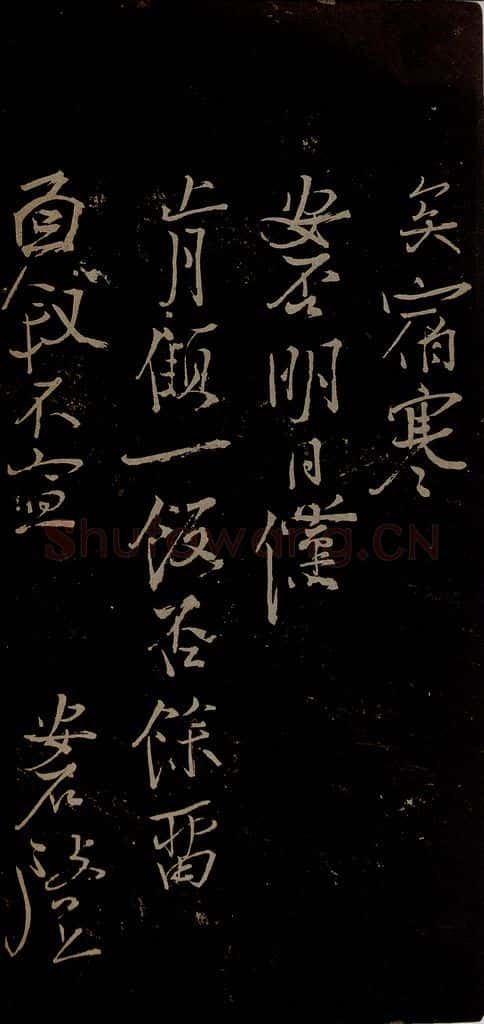 矣宿寒
安否明日僅
肯顧一飯否餘留
面敘不宣 安石
Shufawang.CN